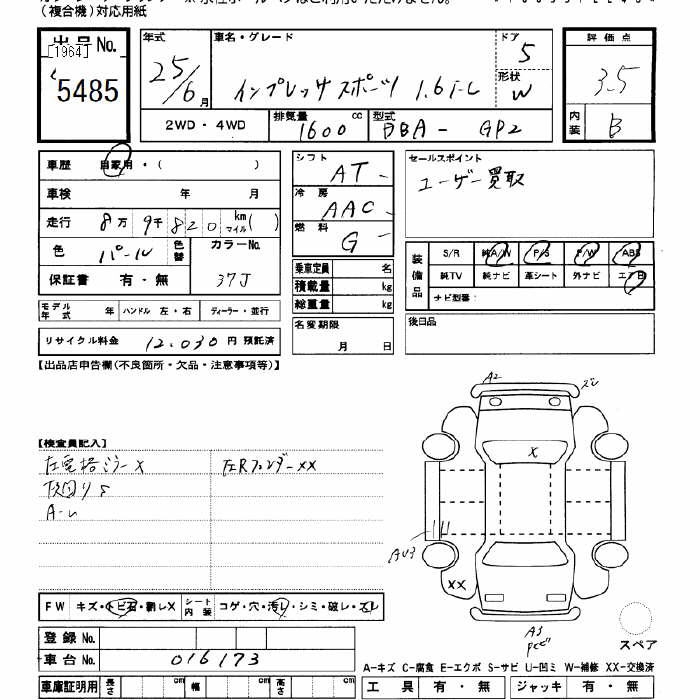 (複合機)対応用紙
出品No.
[1964]
5485
年式 車名・グレード ドア
25/6月 インプレッサスポーツ 1.6i-L 5
形状 W
2WD・4WD 排気量 1600 cc 型式 DBA-GP2
評価点
3.5
内装 B
車歴 自家用・( )
車検 年 月
走行 8万 9千 820 km マイル( )
色 パール 色替 カラーNo. 37J
保証書 有・無
モデル年式 年 ハンドル 左・右 ディーラー・並行
リサイクル料金 12.030 円 預託済
シフト AT
冷房 AAC
燃料 G
乗車定員 名
積載量 kg
総重量 kg
名変期限
月 日
セールスポイント
ユーザー買取
装備品 S/R 純A/W P/S P/W ABS
純TV 純ナビ 革シート 外ナビ エアB
ナビ型番:
後日品
【出品店申告欄(不良箇所・欠品・注意事項等)】
【検査員記入】
左電格ミラーX 左Rフェンダーxx
A2
ズレ
X
AU3
XX
A3
スペア
FW キズ・トビ石・割レX シート内装 コゲ・穴・汚レ・シミ・破レ・スレ
登録No.
車台No. 016173
車庫証明用 長さ cm 幅 cm 高さ cm
A-キズ C-腐食 E-エクボ S-サビ U-凹ミ W-補修 XX-交換済
工具 有・無 ジャッキ 有・無